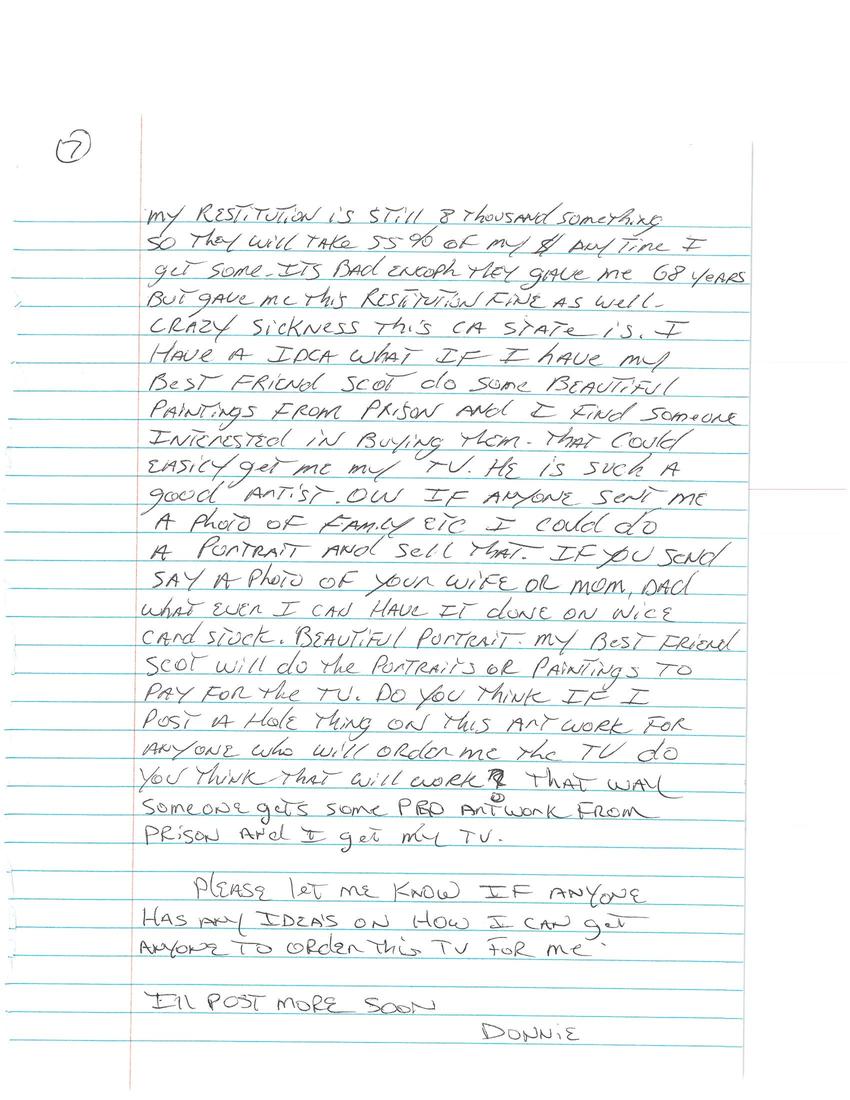 7
my RESTITUTION is STill 8 Thousand something
SO They will TAKE 55% OF my $ Any Time I
get some. ITS BAD ENOPH They gave me 68 years
BUT gave me This RESTITUTION FINE AS well.
CRAZY SICKNESS This CA STATE is. I
HAVE A IDEA WHAT IF I have my
BEST FRIEND SCOT do some BEAUTIFUL
PAINTINGS FROM PRISON AND I FIND someone
INTERESTED IN BUYING Them. THAT COULD
EASILY get me my TV. HE is such A
good ARTIST. OW IF ANYONE SENT ME
A PhoTO OF FAMILY ETC I could do
A PORTRAIT AND Sell THAT. IF YOU SEND
SAY A PhoTO OF YOUR WIFE OR MOM, DAD
WHAT EVER I CAN HAVE IT done ON NICE
CARD STOCK. BEAUTIFUL PORTRAIT. MY BEST FRIEND
SCOT will do the PORTRAITS OR PAINTINGS TO
PAY FOR the TV. DO YOU THINK IF I
POST A HOLE THING ON THIS ART WORK FOR
ANYONE who will order me the TV do
YOU THINK THAT will work? THAT WAY
SOMEONE gets some PRO ARTWORK FROM
PRISON AND I get my TV.
PLEASE let me KNOW IF ANYONE
HAS ANY IDEA'S ON HOW I CAN get
ANYONE TO ORDER This TV FOR ME.
I'll POST MORE SOON
DONNIE